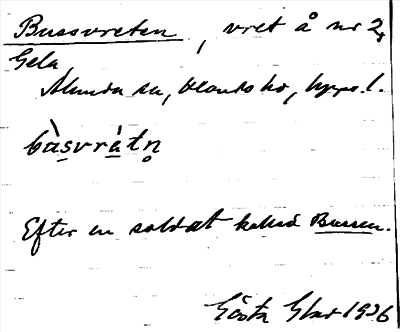 Bussvreten, vret å nr 2,
Gela
Alunda sn, Olands hd, Upps. l.
bùsvrètn̥
Efter en soldat kallad Bussen.
Gösta 1936